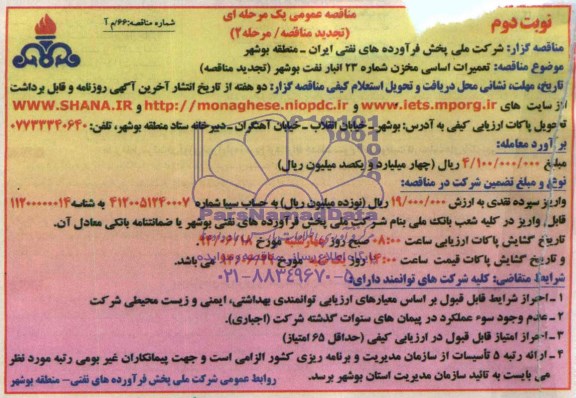 نوبت دوم
مناقصه عمومی یک مرحله ای
(تجدید مناقصه/ مرحله ۲)
شماره مناقصه: ۶۶/م آ
مناقصه گزار: شرکت ملی پخش فرآورده های نفتی ایران ـ منطقه بوشهر
موضوع مناقصه: تعمیرات اساسی مخزن شماره ۲۳ انبار نفت بوشهر (تجدید مناقصه)
تاریخ، مهلت، نشانی محل دریافت و تحویل استعلام کیفی مناقصه گزار: دو هفته از تاریخ انتشار آخرین آگهی روزنامه و قابل برداشت
از سایت های www.iets.mporg.ir و http://monaghese.niopdc.ir و WWW.SHANA.IR
تحویل پاکات ارزیابی کیفی به آدرس: بوشهر ـ خیابان انقلاب ـ خیابان آهنگران ـ دبیرخانه ستاد منطقه بوشهر، تلفن: ۰۷۷۳۳۳۴۰۶۴۰
برآورد معامله:
مبلغ ۴/۱۰۰/۰۰۰/۰۰۰ ریال (چهار میلیارد و یکصد میلیون ریال)
نوع و مبلغ تضمین شرکت در مناقصه:
واریز سپرده نقدی به ارزش ۱۹/۰۰۰/۰۰۰ ریال (نوزده میلیون ریال) به حساب سیبا شماره ۴۱۲۰۰۵۱۳۴۰۰۰۷ به شناسه ۱۱۲۰۰۰۰۰۱۴
قابل واریز در کلیه شعب بانک ملی بنام شرکت ملی پخش فرآورده های نفتی بوشهر یا ضمانتنامه بانکی معادل آن.
تاریخ گشایش پاکات ارزیابی ساعت ۰۸:۰۰ صبح روز چهارشنبه مورخ
و تاریخ گشایش پاکات قیمت ساعت ۱۴:۰۰ روز مورخ می باشد.
شرایط متقاضی: کلیه شرکت های توانمند دارای:
۱ ـ احراز شرایط قابل قبول بر اساس معیارهای ارزیابی توانمندی بهداشتی، ایمنی و زیست محیطی شرکت
۲ ـ عدم وجود سوء عملکرد در پیمان های سنوات گذشته شرکت (اجباری).
۳ ـ احراز امتیاز قابل قبول در ارزیابی کیفی (حداقل ۶۵ امتیاز)
۴ ـ ارائه رتبه ۵ تأسیسات از سازمان مدیریت و برنامه ریزی کشور الزامی است و جهت پیمانکاران غیر بومی رتبه مورد نظر
می بایست به تائید سازمان مدیریت استان بوشهر برسد.
روابط عمومی شرکت ملی پخش فرآورده های نفتی- منطقه بوشهر
ParsNamadData
۰۲۱-۸۸۳۴۹۶۷۰-۵